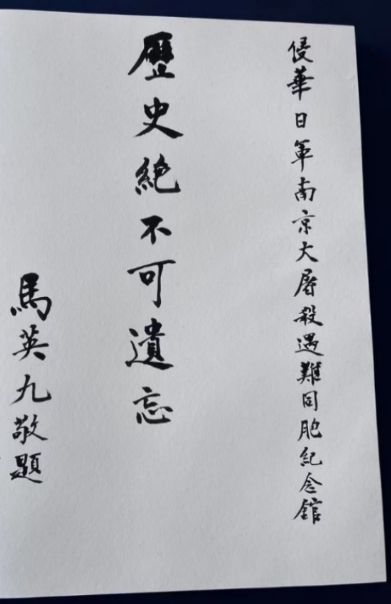 侵華日軍南京大屠殺遇難同胞紀念館
歷史絕不可遺忘
馬英九敬題